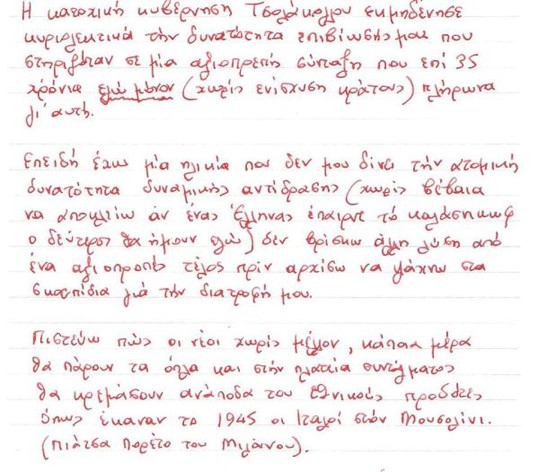 Η κατοχική κυβέρνηση Τσολάκογλου εκμηδένησε
κυριολεκτικά την δυνατότητα επιβίωσής μου που
στηριζόταν σε μία αξιοπρεπή σύνταξη που επί 35
χρόνια εγώ μόνον (χωρίς ενίσχυση κράτους) πλήρωνα
γι' αυτή.
Επειδή έχω μία ηλικία που δεν μου δίνει την ατομική
δυνατότητα δυναμικής αντίδρασης (χωρίς βέβαια
να αποκλείω αν ένας Έλληνας έπαιρνε το καλάσνικωφ
ο δεύτερος θα ήμουν εγώ) δεν βρίσκω άλλη λύση από
ένα αξιοπρεπές τέλος πριν αρχίσω να ψάχνω στα
σκουπίδια για την διατροφή μου.
Πιστεύω πώς οι νέοι χωρίς μέλλον, κάποια μέρα
θα πάρουν τα όπλα και στην πλατεία συντάγματος
θα κρεμάσουν ανάποδα τους εθνικούς προδότες
όπως έκαναν το 1945 οι Ιταλοί στον Μουσολίνι.
(πιάτσα Πορέτο του Μιλάνου).